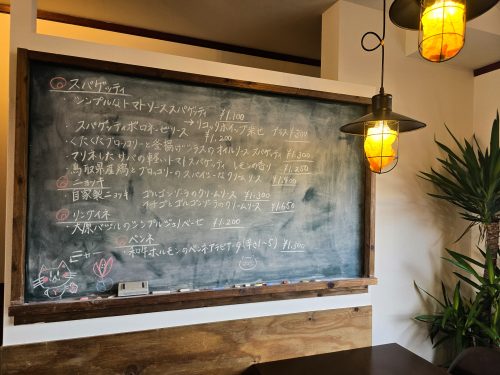 スパゲッティ
・シンプルなトマトソーススパゲッティ ¥1.100
・スパゲッティボロネーゼソース → リコッタホイップ乗せ プラス¥300
¥1.200
・くたくたブロッコリーと釜揚げシラスのオイルソース スパゲッティ ¥1.300
・マリネしたサバの軽いトマトスパゲッティ レモンの香り ¥1.250
・鳥取県産鶏とブロッコリーのスパイシーなクリームソース ¥1.400
ニョッキ
・自家製ニョッキ ゴルゴンゾーラのクリームソース ¥1.300
イチゴとゴルゴンゾーラのクリームソース ¥1.650
リングイネ
・大原バジルのシンプルジェノベーゼ ¥1.200
ペンネ
・和牛ホルモンのペンネアラビアータ(辛さ1~5) ¥1.300
ニャー